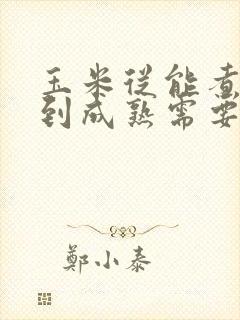 玉米從能煮
到成熟需要
鄭小泰